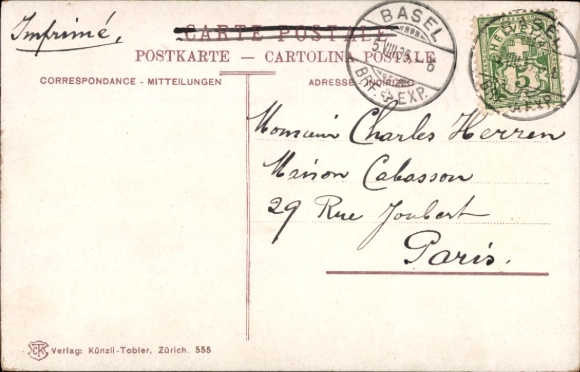 Imprimé,
CARTE POSTALE
POSTKARTE - CARTOLINA POSTALE
CORRESPONDANCE - MITTEILUNGEN
ADRESSE - INDIRIZZO
BASEL
5.VIII.
BRF. EXP.
BASEL
HELVETIA
5
Monsieur Charles Herren
Maison Cabasson
29 Rue Joubert
Paris.
Verlag: Künzli-Tobler, Zürich. 555